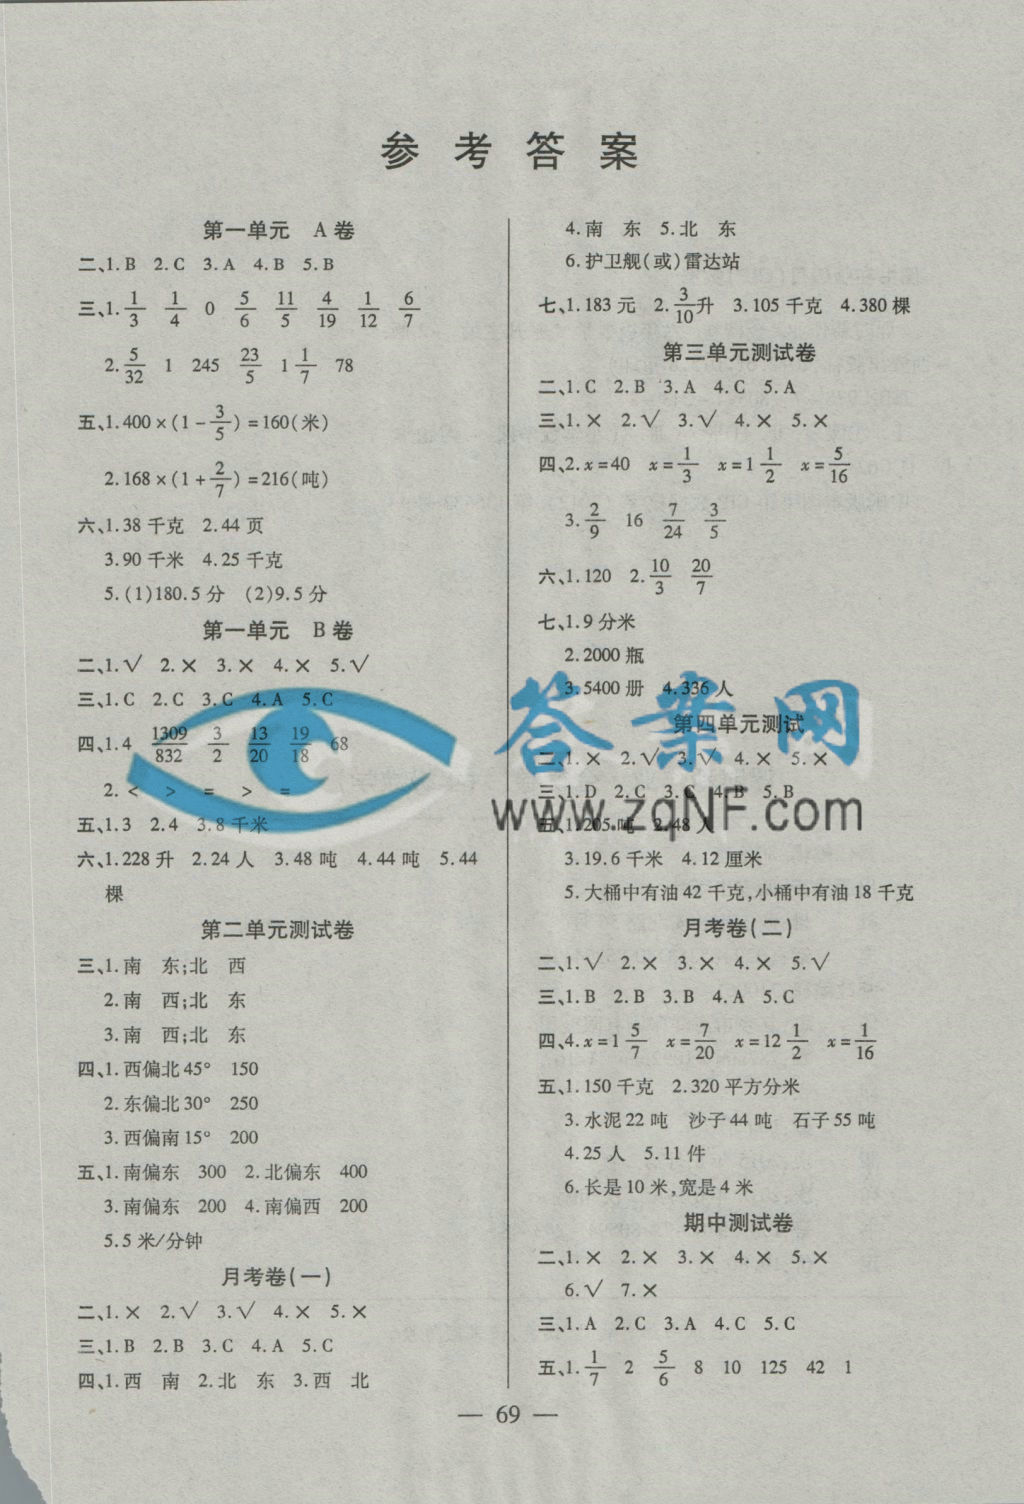 参考答案
第一单元 A卷
二、1.B 2.C 3.A 4.B 5.B
三、1. 1/3 1/4 0 5/6 11/5 4/19 1/12 6/7
2. 5/32 1 245 23/5 1 1/7 78
五、1.400×(1-3/5)=160(米)
2.168×(1+2/7)=216(吨)
六、1.38千克 2.44页
3.90千米 4.25千克
5.(1)180.5分 (2)9.5分
第一单元 B卷
二、1.√ 2.× 3.× 4.× 5.√
三、1.C 2.C 3.C 4.A 5.C
四、1.4 1309/832 3/2 13/20 19/18 68
2.< > = > =
五、1.3 2.4 3.8千米
六、1.228升 2.24人 3.48吨 4.44吨 5.44
棵
第二单元测试卷
三、1.南 东;北 西
2.南 西;北 东
3.南 西;北 东
四、1.西偏北45° 150
2.东偏北30° 250
3.西偏南15° 200
五、1.南偏东 300 2.北偏东 400
3.南偏东 200 4.南偏西 200
5.5米/分钟
月考卷(一)
二、1.× 2.√ 3.√ 4.× 5.×
三、1.B 2.B 3.C 4.A 5.C
四、1.西 南 2.北 东 3.西 北
4.南 东 5.北 东
6.护卫舰(或)雷达站
七、1.183元 2. 3/10升 3.105千克 4.380棵
第三单元测试卷
二、1.C 2.B 3.A 4.C 5.A
三、1.× 2.√ 3.√ 4.× 5.×
四、2.x=40 x=1/3 x=1 1/2 x=5/16
3. 2/9 16 7/24 3/5
六、1.120 2. 10/3 20/7
七、1.9分米
2.2000瓶
3.5400册 4.336人
第四单元测试
二、1.× 2.√ 3.√ 4.× 5.×
三、1.D 2.C 3.C 4.B 5.B
五、1.205吨 2.48人
3.19.6千米 4.12厘米
5.大桶中有油42千克,小桶中有油18千克
月考卷(二)
二、1.√ 2.× 3.× 4.× 5.√
三、1.B 2.B 3.B 4.A 5.C
四、4.x=1 5/7 x=7/20 x=12 1/2 x=1/16
五、1.150千克 2.320平方分米
3.水泥22吨 沙子44吨 石子55吨
4.25人 5.11件
6.长是10米,宽是4米
期中测试卷
二、1.× 2.× 3.× 4.× 5.×
6.√ 7.×
三、1.A 2.C 3.A 4.C 5.C
五、1. 1/7 2 5/6 8 10 125 42 1
— 69 —
答案网
www.zqNF.com